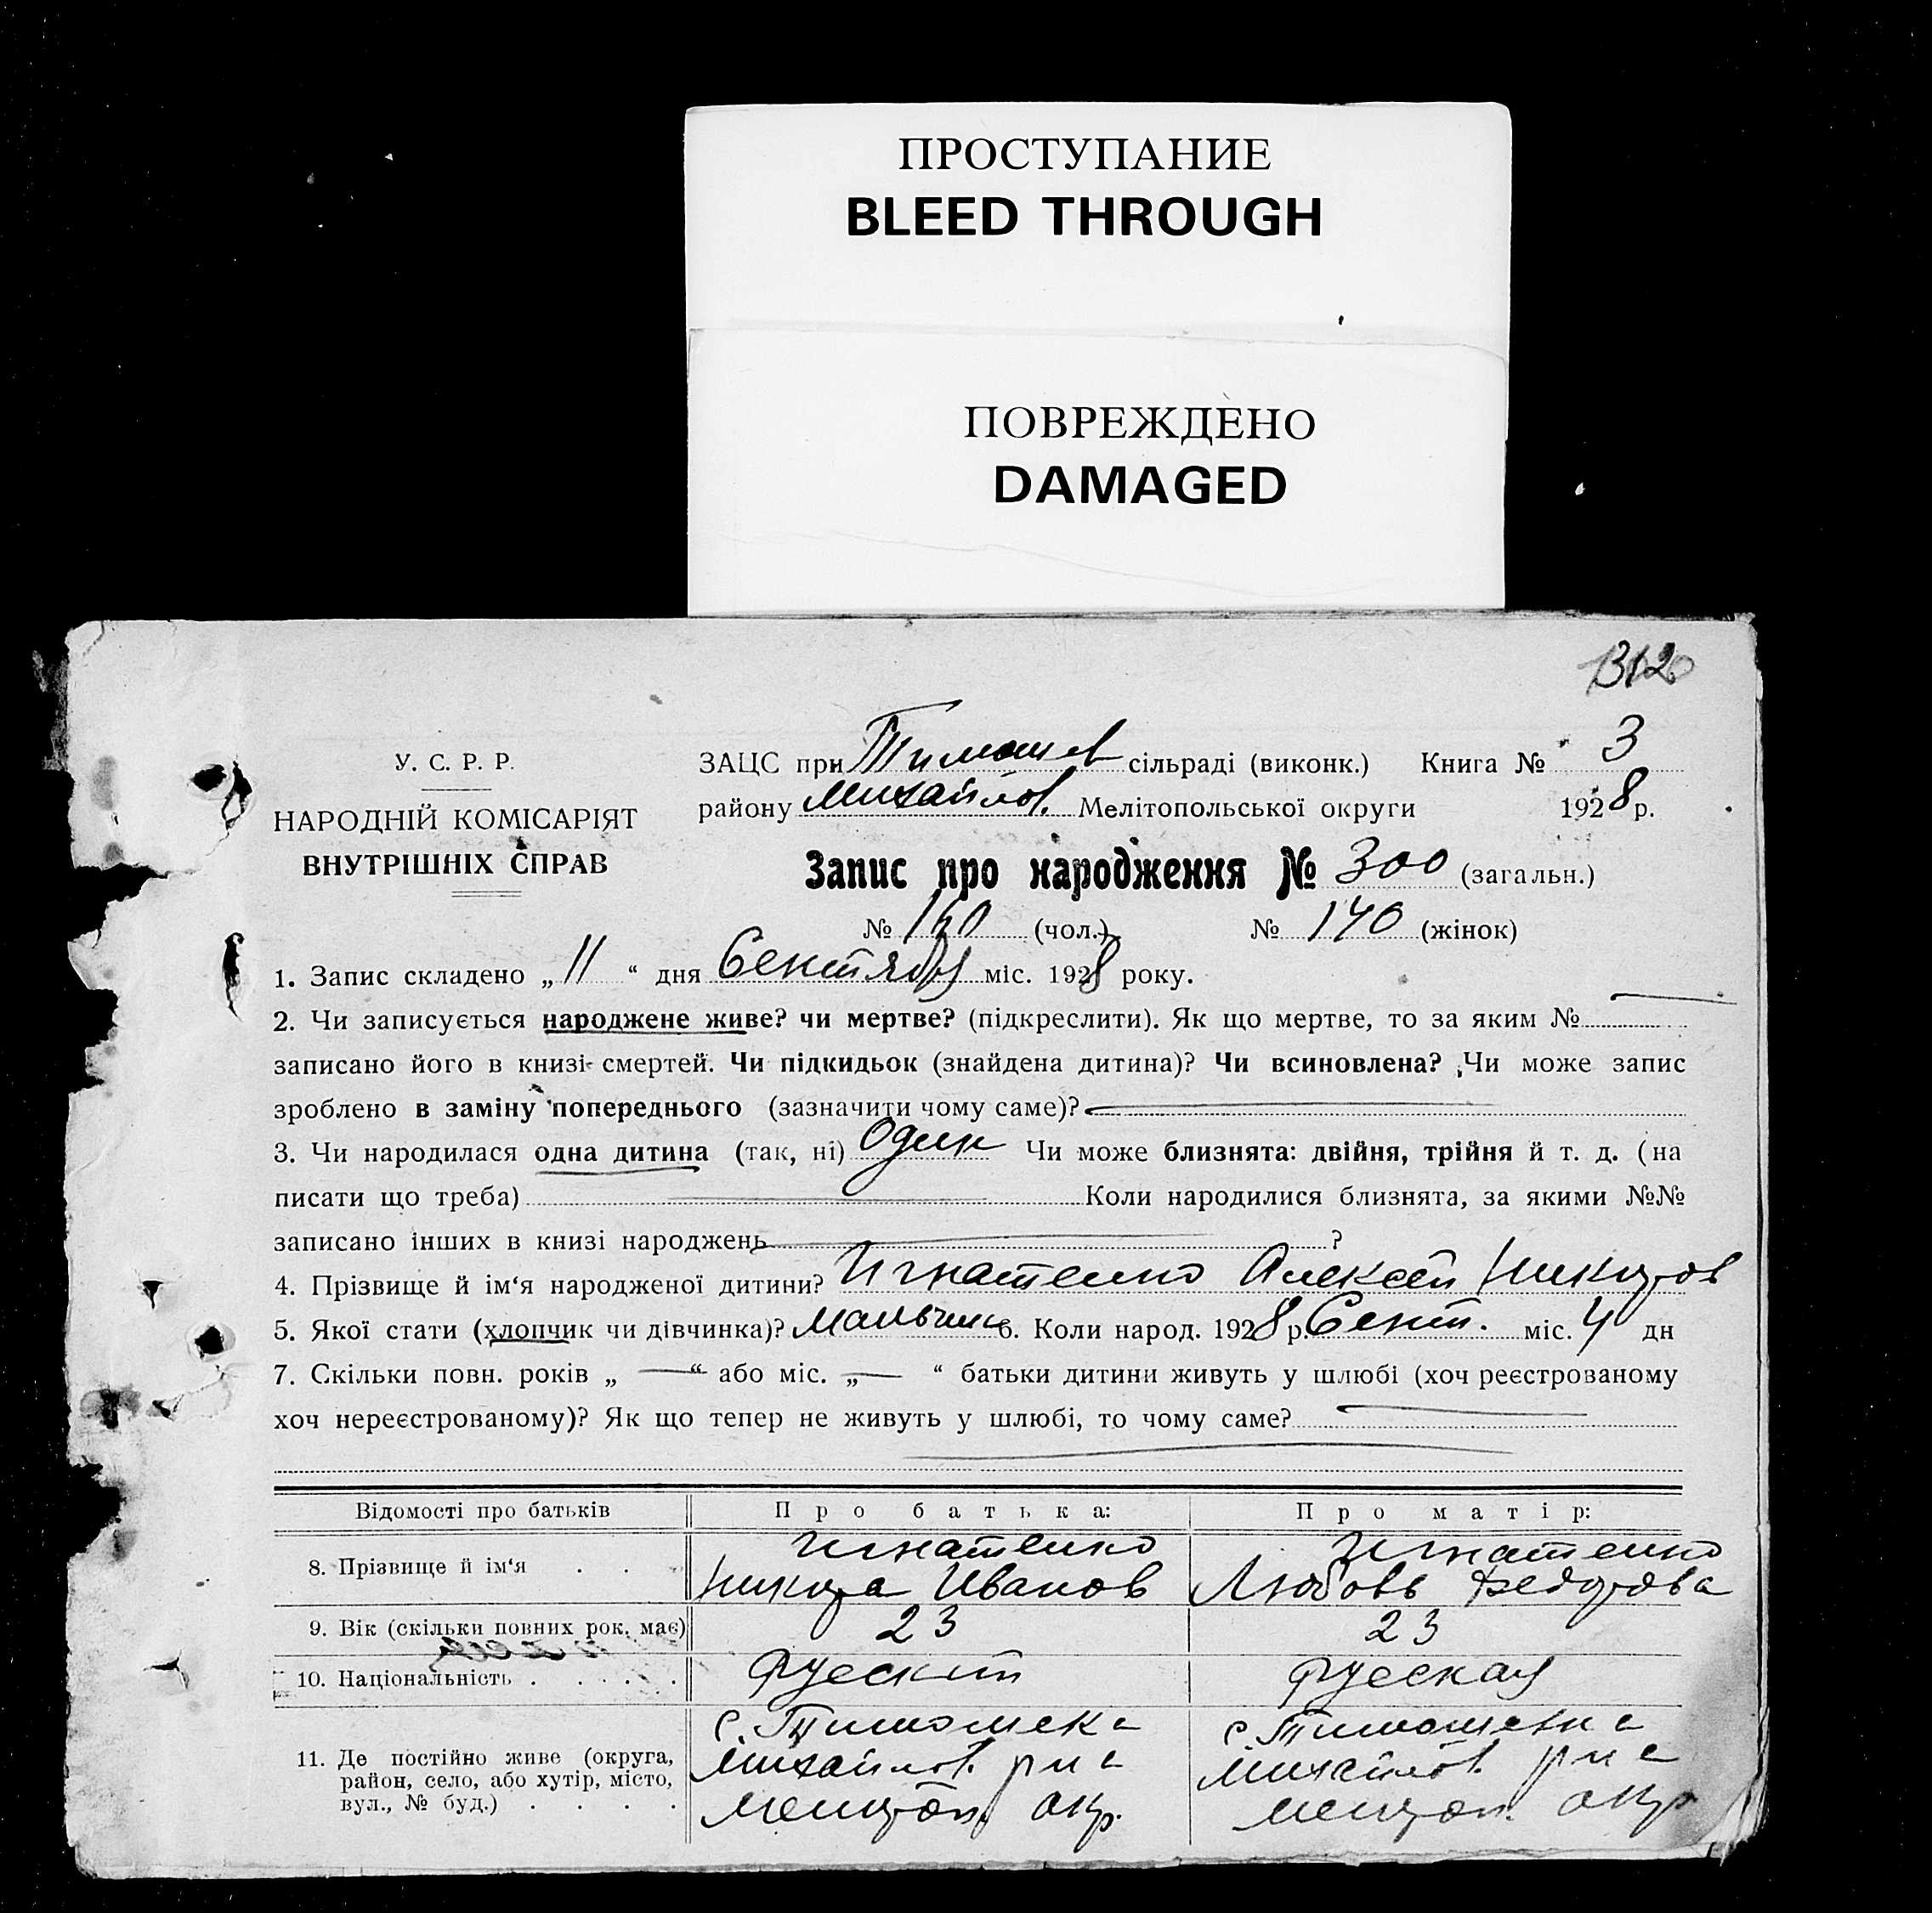 ПРОСТУПАНИЕ
BLEED THROUGH
ПОВРЕЖДЕНО
DAMAGED
У. С. Р. Р.
НАРОДНІЙ КОМІСАРІЯТ
ВНУТРІШНІХ СПРАВ
ЗАЦС при Тимошев сільраді (виконк.) Книга № 3
району Михайлов. Мелітопольської округи 1928 р.
Запис про народження № 300 (загальн.)
№ 160 (чол.) № 140 (жінок)
1. Запис складено „ 11 “ дня Сентября міс. 1928 року.
2. Чи записується народжене живе? чи мертве? (підкреслити). Як що мертве, то за яким №
записано його в книзі смертей. Чи підкидьок (знайдена дитина)? Чи всиновлена? Чи може запис
зроблено в заміну попереднього (зазначити чому саме)?
3. Чи народилася одна дитина (так, ні) Один Чи може близнята: двійня, трійня й т. д. (на
писати що треба) Коли народилися близнята, за якими №№
записано інших в книзі народжень ?
4. Прізвище й ім‘я народженої дитини? Игнатенко Алексей Никитов
5. Якої стати (хлопчик чи дівчинка)? Мальчик 6. Коли народ. 1928 р. Сент. міс. 4 дн
7. Скільки повн. років „ — “ або міс. „ — “ батьки дитини живуть у шлюбі (хоч реєстрованому
хоч нереєстрованому)? Як що тепер не живуть у шлюбі, то чому саме?
Відомості про батьків Про батька: Про матір:
8. Прізвище й ім‘я . . . Игнатенко Никита Иванов Игнатенко Любовь Федотова
9. Вік (скільки повних рок. має) 23 23
10. Національність . . . . . Руский Руская
11. Де постійно живе (округа, с. Тимошека с. Тимошевка
район, село, або хутір, місто, Михайлов. р на Михайлов. р на
вул., № буд.) . . . . Мелитоп. окр. Мелитоп. окр